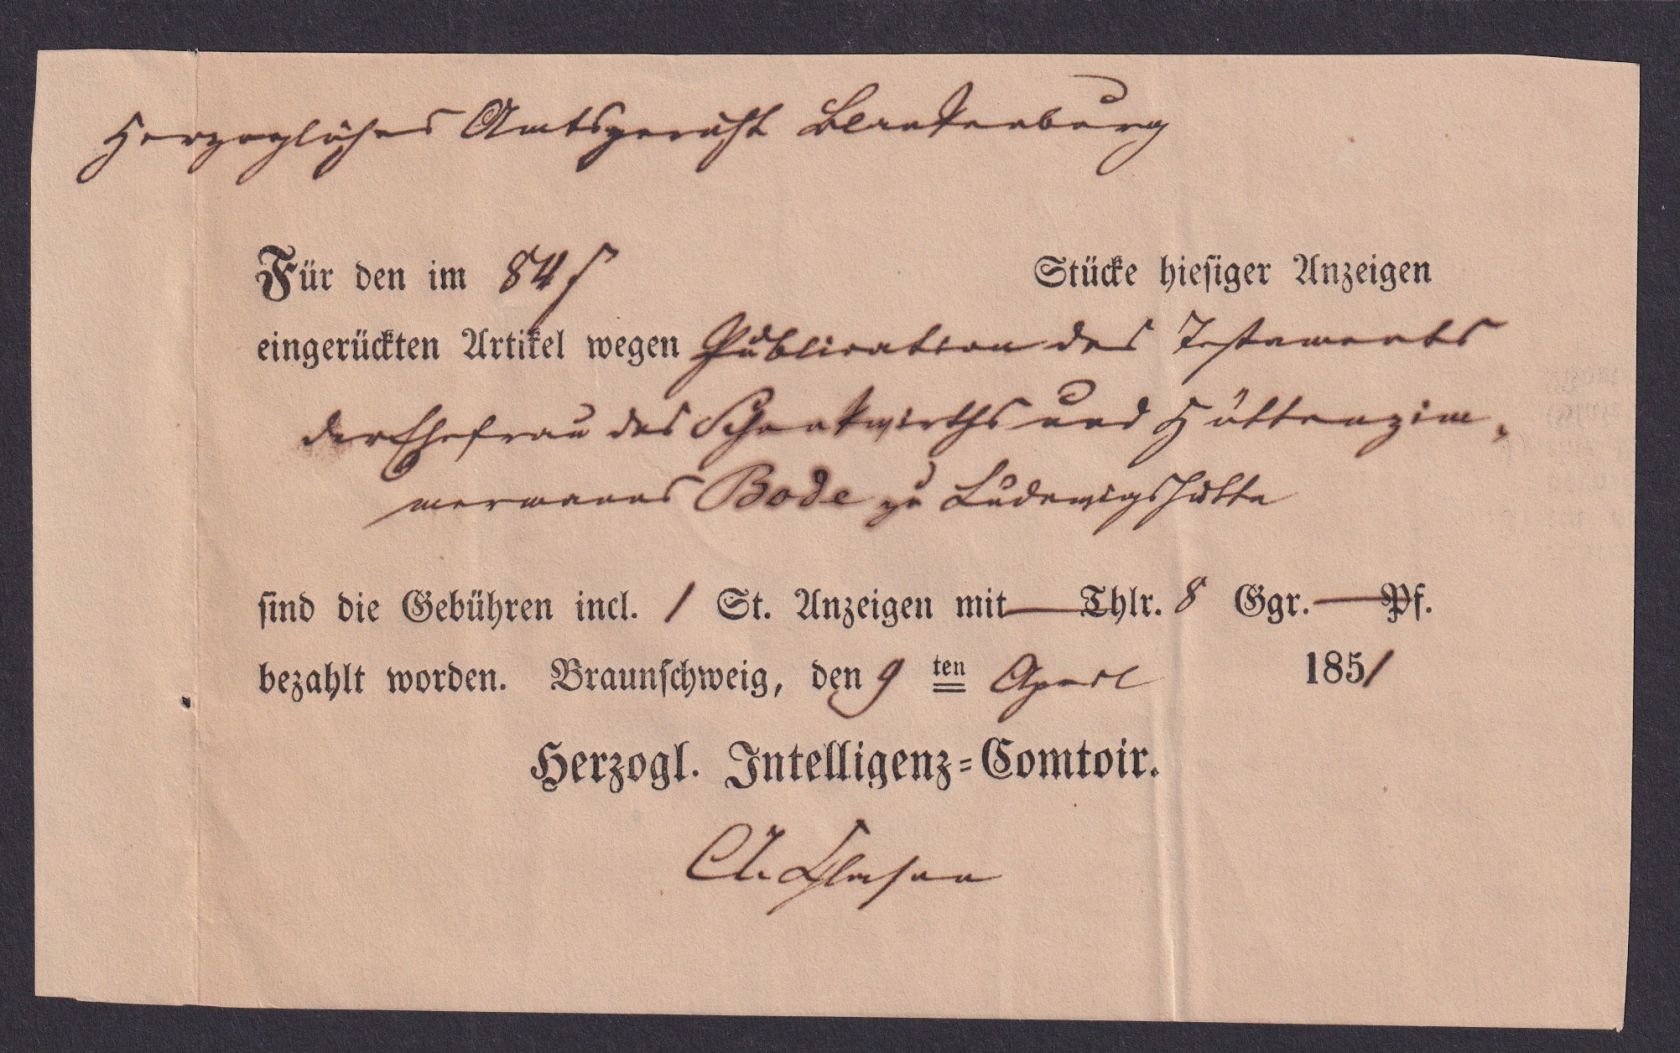 Herzogliches Amtsgericht Blankenburg
Für den im 84 Stücke hiesiger Anzeigen
eingerückten Artikel wegen Publication des Testaments
der Ehefrau des Schenkwirths und Hüttenzim-
mermanns Bode zu Ludewigshütte
sind die Gebühren incl. 1 St. Anzeigen mit — Thlr. 8 Ggr. — Pf.
bezahlt worden. Braunschweig, den 9 ten April 1851
Herzogl. Intelligenz-Comtoir.